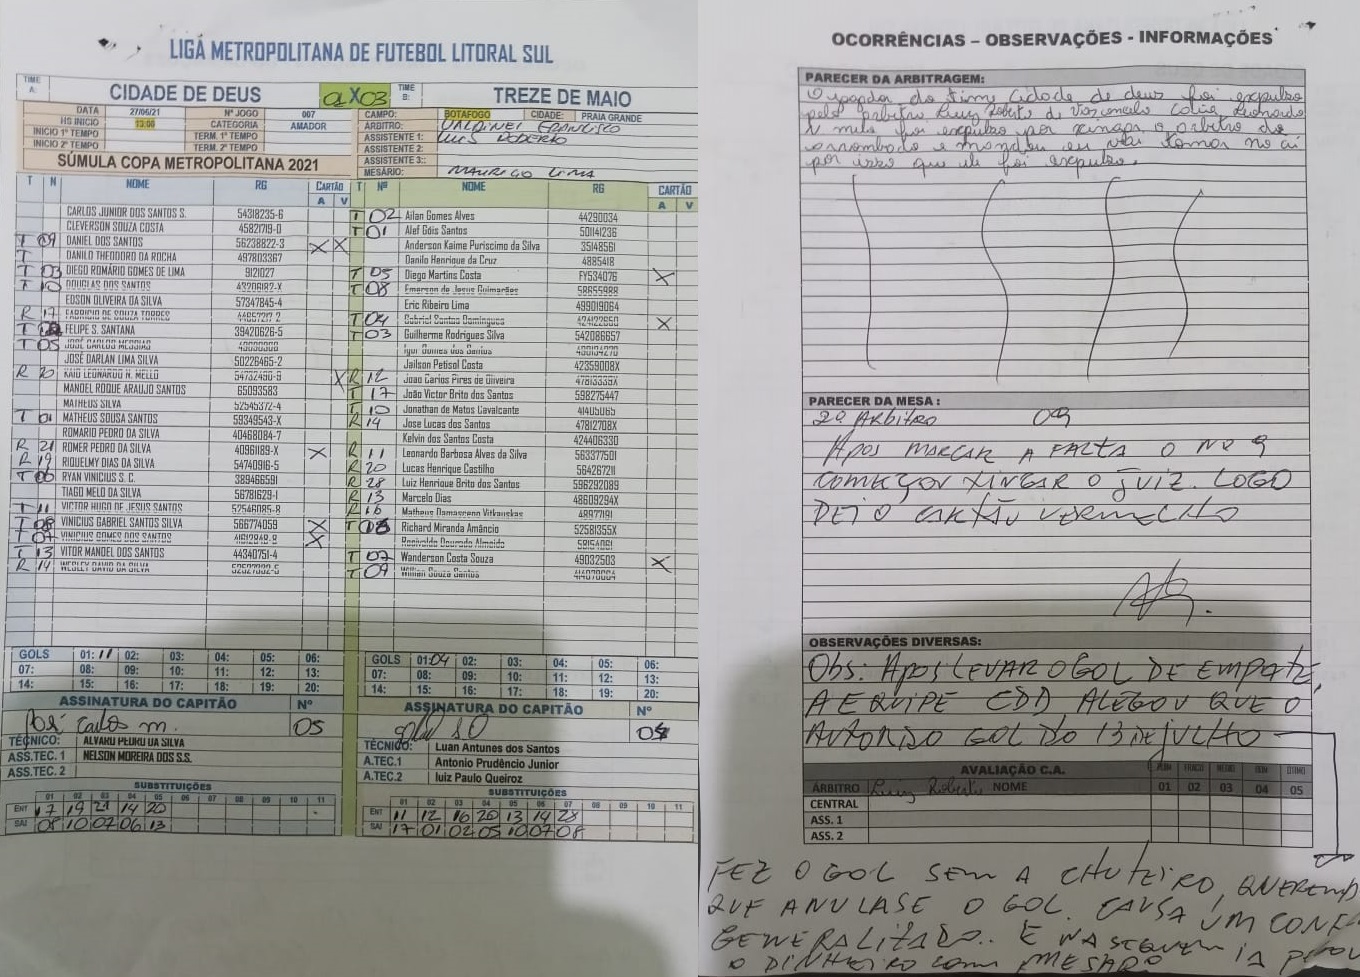 LIGA METROPOLITANA DE FUTEBOL LITORAL SUL
TIME A: CIDADE DE DEUS 01 X 03 TIME B: TREZE DE MAIO
DATA 27/06/21 Nº JOGO 007
HS INICIO 13:00 CATEGORIA AMADOR
INICIO 1º TEMPO TERM. 1º TEMPO
INICIO 2º TEMPO TERM. 2º TEMPO
SÚMULA COPA METROPOLITANA 2021
CAMPO: BOTAFOGO CIDADE: PRAIA GRANDE
ARBITRO: VALDINEI FRANCISCO
ASSISTENTE 1: LUIS ROBERTO
ASSISTENTE 2:
ASSISTENTE 3::
MESÁRIO: MAURICIO LIMA
T N NOME RG CARTÃO A V
CARLOS JUNIOR DOS SANTOS S. 54318235-6
CLEVERSON SOUZA COSTA 45821719-0
T 09 DANIEL DOS SANTOS 56238822-3 X X
T DANILO THEODORO DA ROCHA 497803367
T 03 DIEGO ROMÁRIO GOMES DE LIMA 9121027
T 10 DOUGLAS DOS SANTOS 43206182-X
EDSON OLIVEIRA DA SILVA 57347845-4
R 17 FABRICIO DE SOUZA TORRES
T FELIPE S. SANTANA 39420626-5
T 05 JOSÉ CARLOS MESSIAS
JOSÉ DARLAN LIMA SILVA 50226465-2
R 20 KAIO LEONARDO N. MELLO 54732490-9 X
MANOEL ROQUE ARAUJO SANTOS 65093583
MATHEUS SILVA 52545372-4
T 01 MATHEUS SOUSA SANTOS 59349543-X
ROMARIO PEDRO DA SILVA 40468084-7
R 21 ROMER PEDRO DA SILVA 40961189-X X
R 19 RIQUELMY DIAS DA SILVA 54740916-5
T 06 RYAN VINICIUS S. C. 389466591
TIAGO MELO DA SILVA 56781629-1
T 11 VICTOR HUGO DE JESUS SANTOS 52546085-8
T 08 VINICIUS GABRIEL SANTOS SILVA 566774059 X
T 07 VINICIUS GOMES DOS SANTOS X
T 13 VITOR MANOEL DOS SANTOS 44340751-4
R 14 WESLEY DAVID DA SILVA
T Nº NOME RG CARTÃO A V
T 02 Ailan Gomes Alves 44290034
T 01 Alef Góis Santos 501141236
Anderson Kaime Puríscimo da Silva 35148561
Danilo Henrique da Cruz 4885418
T 05 Diego Martins Costa FY534076 X
T 08 Emerson de Jesus Guimarães 58655988
Eric Ribeiro Lima 499019064
T 04 Gabriel Santos Domingues 424122650 X
T 03 Guilherme Rodrigues Silva 542086657
Igor Gomes dos Santos
Jailson Petisol Costa 42359008X
R 12 João Carlos Pires de Oliveira
T 17 João Victor Brito dos Santos 598275447
T 10 Jonathan de Matos Cavalcante 41405065
R 14 Jose Lucas dos Santos 47812708X
Kelvin dos Santos Costa 424406330
R 11 Leonardo Barbosa Alves da Silva 563377501
R 20 Lucas Henrique Castilho 56426721
R 28 Luiz Henrique Brito dos Santos 596292089
R 13 Marcelo Dias 48609294X
R 16 Matheus Damasceno Vitkauskas 48977191
T 06 Richard Miranda Amâncio 52581355X
Ronivaldo Dourado Almeida
T 07 Wanderson Costa Souza 49032503 X
T 09 Willian Souza Santos
GOLS 01: 11 02: 03: 04: 05: 06:
07: 08: 09: 10: 11: 12: 13:
14: 15: 16: 17: 18: 19: 20:
GOLS 01: 04 02: 03: 04: 05: 06:
07: 08: 09: 10: 11: 12: 13:
14: 15: 16: 17: 18: 19: 20:
ASSINATURA DO CAPITÃO Nº
José Carlos m. 05
TÉCNICO: ALVARO PEDRO DA SILVA
ASS.TEC. 1 NELSON MOREIRA DOS S.S.
ASS.TEC. 2
SUBSTITUIÇÕES
01 02 03 04 05 06 07 08 09 10 11
ENT 17 19 21 14 20
SAI 08 10 07 06 13
ASSINATURA DO CAPITÃO Nº
TÉCNICO: Luan Antunes dos Santos
A.TEC.1 Antonio Prudêncio Junior
A.TEC.2 luiz Paulo Queiroz
SUBSTITUIÇÕES
01 02 03 04 05 06 07 08 09 10 11
ENT 11 12 16 20 13 14 28
SAI 17 01 02 05 10 07 08
OCORRÊNCIAS – OBSERVAÇÕES - INFORMAÇÕES
PARECER DA ARBITRAGEM:
O jogador do time Cidade de deus foi expulso
pelo arbitro Luiz Roberto de Vasconcelo Kaio Leonardo
N melo foi expulso por xingar o arbitro de
arrombado e mandou eu vai tomar no cú
por isso que ele foi expulso.
PARECER DA MESA :
2º ARBITRO 09
APOS MARCAR A FALTA O NO 9
COMEÇOU XINGAR O JUIZ. LOGO
DEI O CARTÃO VERMELHO
OBSERVAÇÕES DIVERSAS:
Obs: APOS LEVAR O GOL DE EMPATE,
A EQUIPE CDD ALEGOU QUE O
AUTOR DO GOL DO 13 DE JULHO
AVALIAÇÃO C.A.
ÁRBITRO Luiz Roberto NOME 01 02 03 04 05
CENTRAL
ASS. 1
ASS. 2
FEZ O GOL SEM A CHUTEIRO, QUERENDO
QUE ANULASE O GOL. CAUSA UM CONF
GENERALIZADO.. E NA SEGUEN
O DINHEIRO COM MESARO